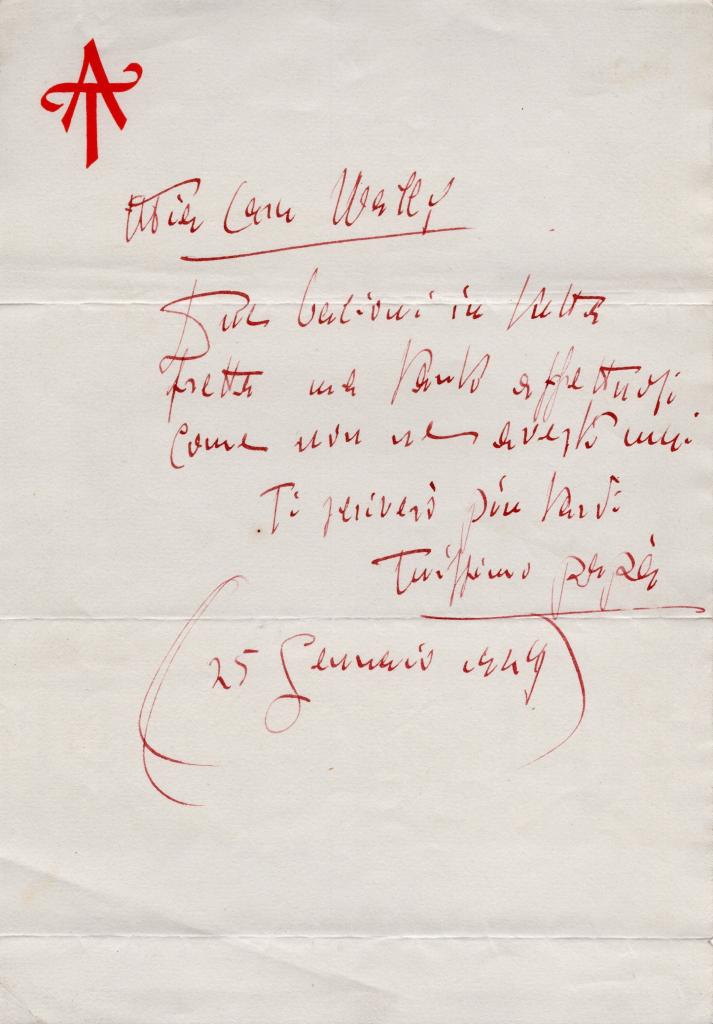 AT
Mia Cara Wally
Due bacioni in tutta
fretta ma tanto affettuosi
come non ne avesti mai
Ti scriverò più tardi
Tuissimo papà
(25 Gennaio 1949)